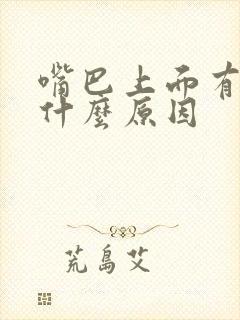 嘴巴上而有
什麼原因
荒島艾